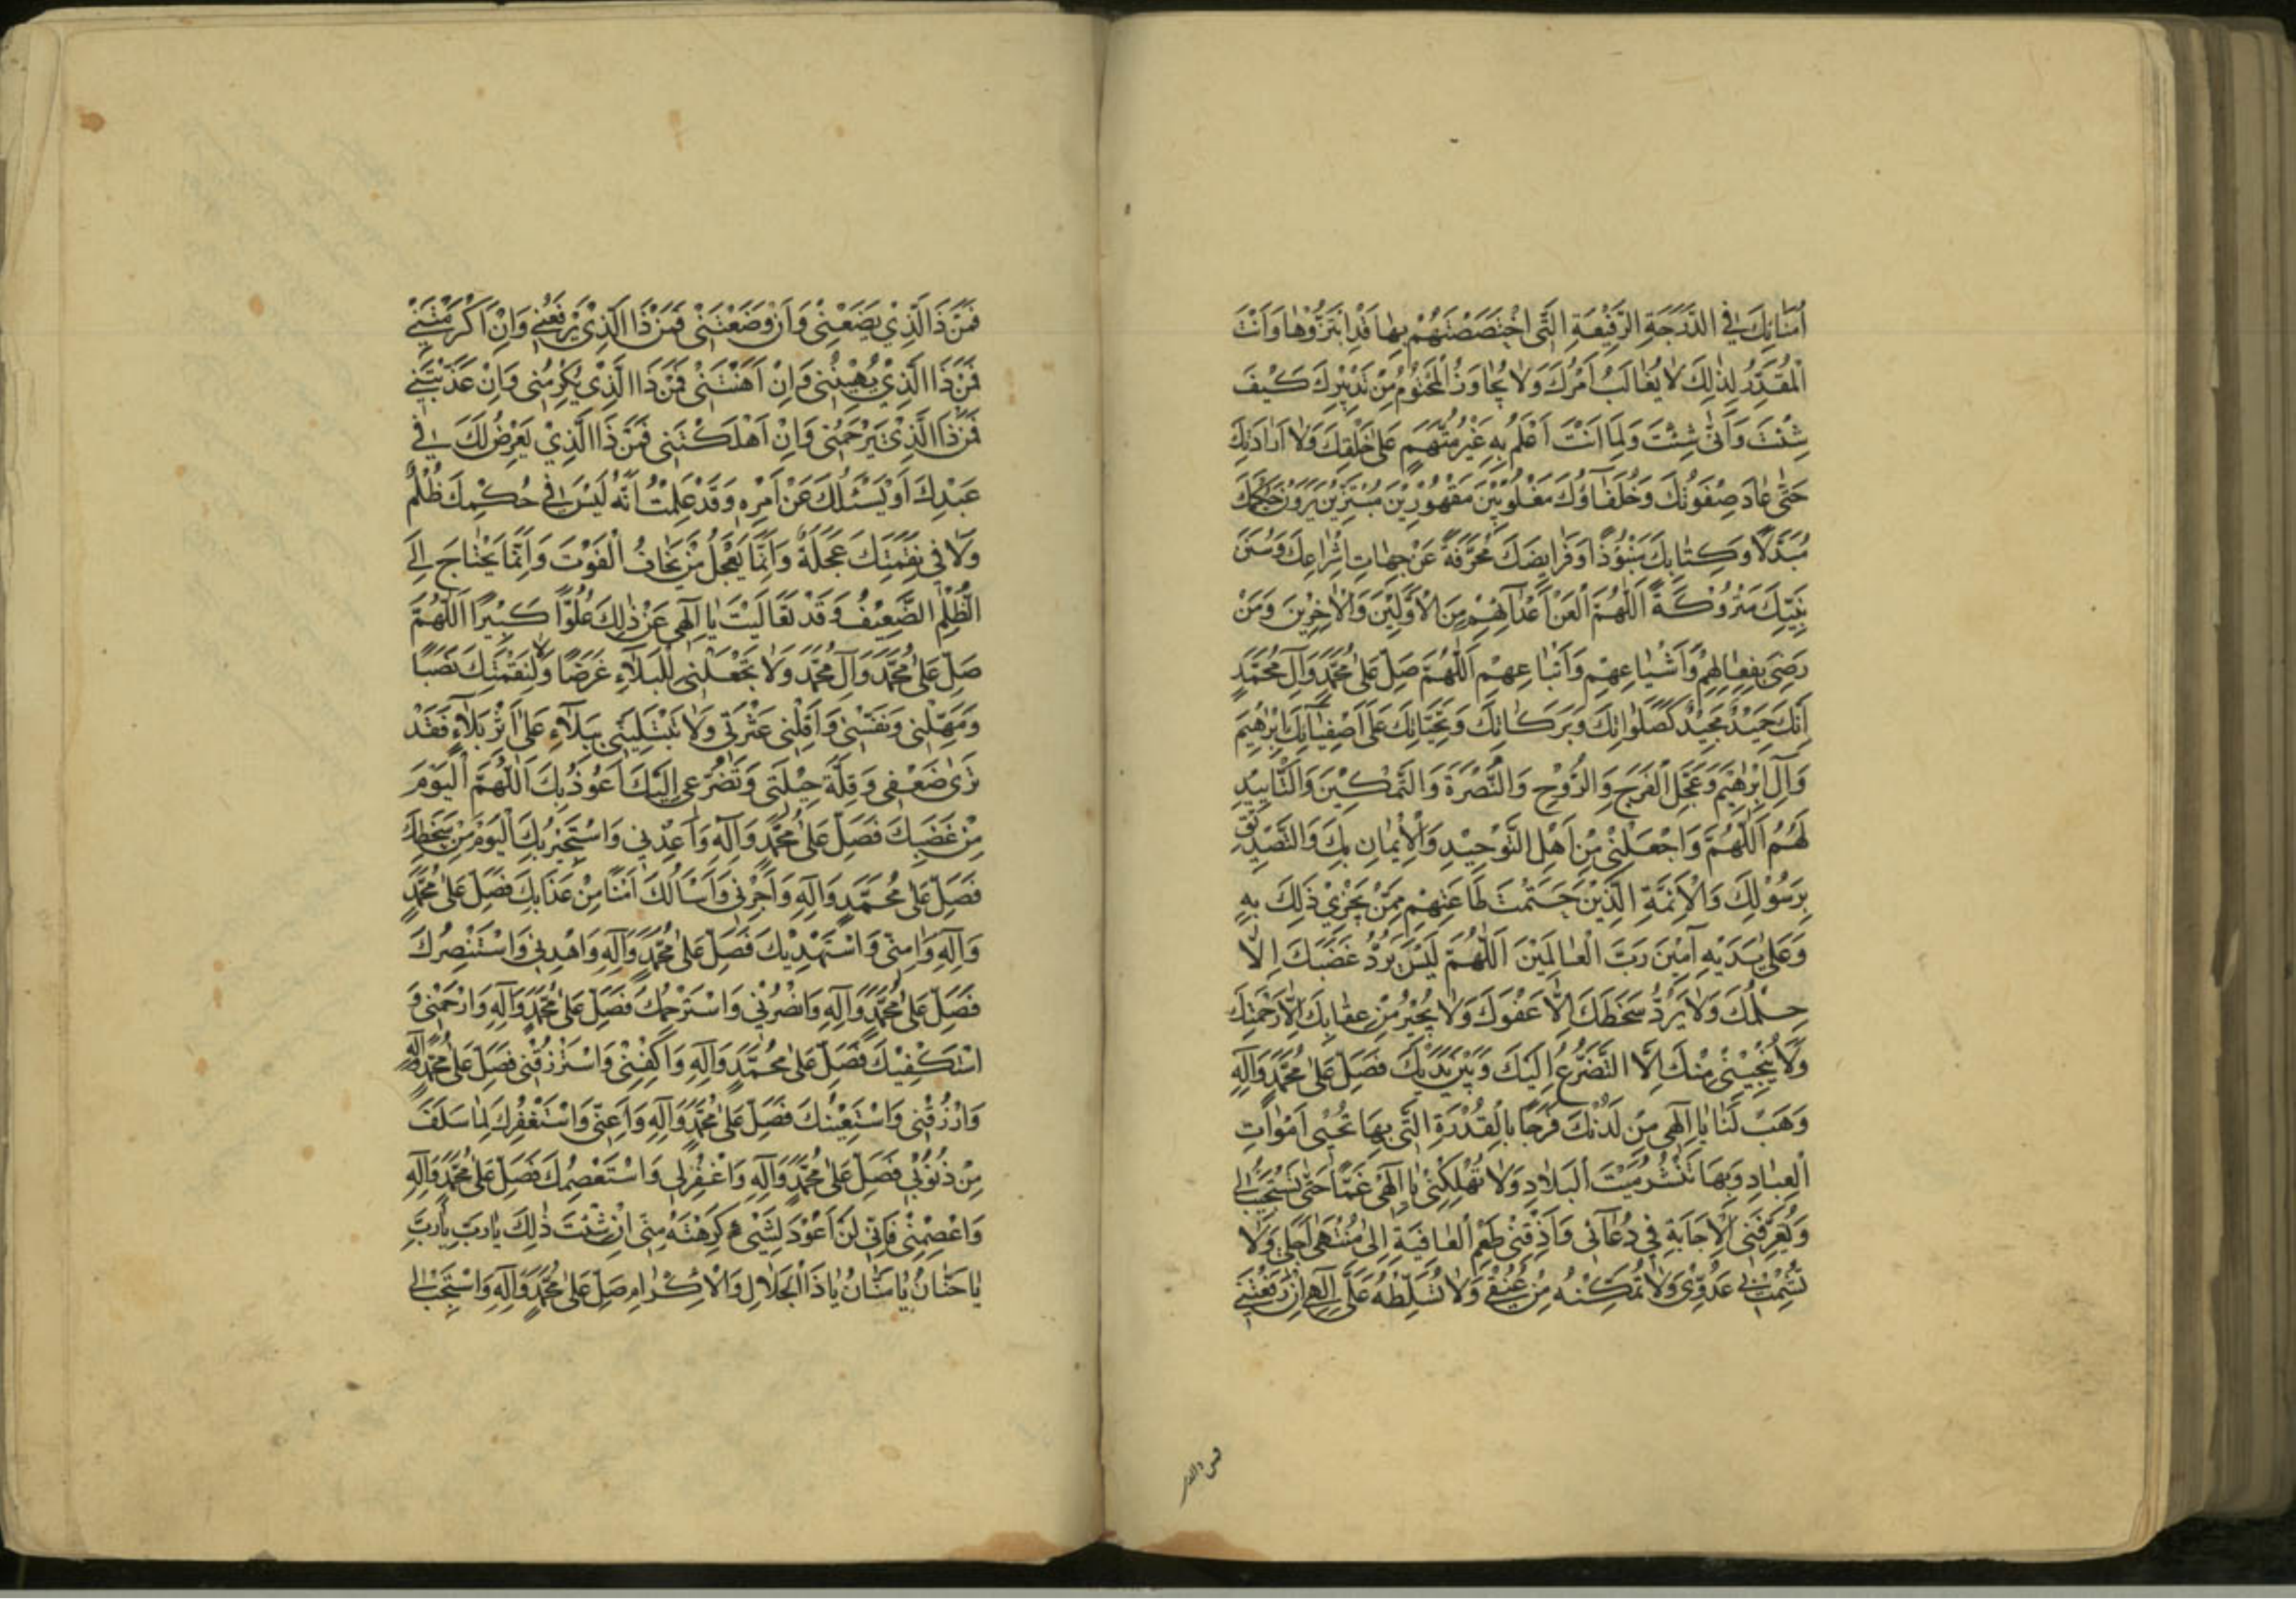 اُمَنَائِكَ فِي الدَّرَجَةِ الرَّفِيْعَةِ الَّتِي اخْتَصَصْتَهُمْ بِهَا قَدِ ابْتَزُّوْهَا وَاَنْتَ
الْمُقَدِّرُ لِذٰلِكَ لَا يُغَالَبُ اَمْرُكَ وَلَا يُجَاوَزُ الْمَحْتُوْمُ مِنْ تَدْبِيْرِكَ كَيْفَ
شِئْتَ وَاَنّٰى شِئْتَ وَلِمَا اَنْتَ اَعْلَمُ بِهِ غَيْرُ مُتَّهَمٍ عَلٰى خَلْقِكَ وَلَا اِرَادَتِكَ
حَتّٰى عَادَ صِفْوَتُكَ وَخُلَفَاؤُكَ مَغْلُوْبِيْنَ مَقْهُوْرِيْنَ مُبْتَزِّيْنَ يَرَوْنَ حُكْمَكَ
مُبَدَّلًا وَكِتَابَكَ مَنْبُوْذًا وَفَرَايِضَكَ مُحَرَّفَةً عَنْ جِهَاتِ اِشْرَاعِكَ وَسُنَنَ
نَبِيِّكَ مَتْرُوْكَةً اَللّٰهُمَّ الْعَنْ اَعْدَآئَهُمْ مِنَ الْاَوَّلِيْنَ وَالْاٰخِرِيْنَ وَمَنْ
رَضِيَ بِفِعَالِهِمْ وَاَشْيَاعِهِمْ وَاَتْبَاعِهِمْ اَللّٰهُمَّ صَلِّ عَلٰى مُحَمَّدٍ وَآلِ مُحَمَّدٍ
اِنَّكَ حَمِيْدٌ مَجِيْدٌ كَصَلَوَاتِكَ وَبَرَكَاتِكَ وَتَحِيَّاتِكَ عَلٰى اَصْفِيَآئِكَ اِبْرٰهِيْمَ
وَآلِ اِبْرٰهِيْمَ وَعَجِّلِ الْفَرَجَ وَالرَّوْحَ وَالنُّصْرَةَ وَالتَّمْكِيْنَ وَالتَّايِيْدَ
لَهُمْ اَللّٰهُمَّ وَاجْعَلْنِيْ مِنْ اَهْلِ التَّوْحِيْدِ وَالْاِيْمَانِ بِكَ وَالتَّصْدِيْقِ
بِرَسُوْلِكَ وَالْاَئِمَّةِ الَّذِيْنَ حَتَمْتَ طَاعَتَهُمْ مِمَّنْ يَجْرِيْ ذٰلِكَ بِهِ
وَعَلٰى يَدَيْهِ آمِيْنَ رَبَّ الْعَالَمِيْنَ اَللّٰهُمَّ لَيْسَ يَرُدُّ غَضَبَكَ اِلَّا
حِلْمُكَ وَلَا يَرُدُّ سَخَطَكَ اِلَّا عَفْوُكَ وَلَا يُجِيْرُ مِنْ عِقَابِكَ اِلَّا رَحْمَتُكَ
وَلَا يُنْجِيْنِيْ مِنْكَ اِلَّا التَّضَرُّعُ اِلَيْكَ وَبَيْنَ يَدَيْكَ فَصَلِّ عَلٰى مُحَمَّدٍ وَآلِهِ
وَهَبْ لَنَا يَا اِلٰهِي مِنْ لَدُنْكَ فَرَجًا بِالْقُدْرَةِ الَّتِي بِهَا تُحْيِي اَمْوَاتَ
الْعِبَادِ وَبِهَا تَنْشُرُ مَيْتَ الْبِلَادِ وَلَا تُهْلِكْنِيْ يَا اِلٰهِي غَمًّا حَتّٰى تَسْتَجِيْبَ لِي
وَتُعَرِّفَنِي الْاِجَابَةَ فِي دُعَآئِي وَاَذِقْنِي طَعْمَ الْعَافِيَةِ اِلٰى مُنْتَهٰى اَجَلِي وَلَا
تُشْمِتْ بِي عَدُوِّيْ وَلَا تُمَكِّنْهُ مِنْ عُنُقِي وَلَا تُسَلِّطْهُ عَلَيَّ اِلٰهِي اِنْ رَفَعْتَنِي
فَمَنْ ذَا الَّذِيْ يَضَعُنِيْ وَاِنْ وَضَعْتَنِيْ فَمَنْ ذَا الَّذِيْ يَرْفَعُنِي وَاِنْ اَكْرَمْتَنِيْ
فَمَنْ ذَا الَّذِيْ يُهِيْنُنِي وَاِنْ اَهَنْتَنِيْ فَمَنْ ذَا الَّذِيْ يُكْرِمُنِي وَاِنْ عَذَّبْتَنِي
فَمَنْ ذَا الَّذِيْ يَرْحَمُنِي وَاِنْ اَهْلَكْتَنِي فَمَنْ ذَا الَّذِيْ يَعْرِضُ لَكَ فِي
عَبْدِكَ اَوْ يَسْئَلُكَ عَنْ اَمْرِهِ وَقَدْ عَلِمْتُ اَنَّهُ لَيْسَ فِي حُكْمِكَ ظُلْمٌ
وَلَا فِي نِقْمَتِكَ عَجَلَةٌ وَاِنَّمَا يَعْجَلُ مَنْ يَخَافُ الْفَوْتَ وَاِنَّمَا يَحْتَاجُ اِلَى
الظُّلْمِ الضَّعِيْفُ وَقَدْ تَعَالَيْتَ يَا اِلٰهِي عَنْ ذٰلِكَ عُلُوًّا كَبِيْرًا اَللّٰهُمَّ
صَلِّ عَلٰى مُحَمَّدٍ وَآلِ مُحَمَّدٍ وَلَا تَجْعَلْنِي لِلْبَلَآءِ غَرَضًا وَلَا لِنِقْمَتِكَ نَصَبًا
وَمَهِّلْنِي وَنَفِّسْنِي وَاَقِلْنِي عَثْرَتِي وَلَا تَبْتَلِيَنِّي بِبَلَآءٍ عَلٰى اَثَرِ بَلَآءٍ فَقَدْ
تَرٰى ضَعْفِي وَقِلَّةَ حِيْلَتِي وَتَضَرُّعِي اِلَيْكَ اَعُوْذُ بِكَ اَللّٰهُمَّ الْيَوْمَ
مِنْ غَضَبِكَ فَصَلِّ عَلٰى مُحَمَّدٍ وَآلِهِ وَاَعِذْنِي وَاَسْتَجِيْرُ بِكَ الْيَوْمَ مِنْ سَخَطِكَ
فَصَلِّ عَلٰى مُحَمَّدٍ وَآلِهِ وَاَجِرْنِي وَاَسْاَلُكَ اَمْنًا مِنْ عَذَابِكَ فَصَلِّ عَلٰى مُحَمَّدٍ
وَآلِهِ وَاٰمِنِّي وَاَسْتَهْدِيْكَ فَصَلِّ عَلٰى مُحَمَّدٍ وَآلِهِ وَاهْدِنِي وَاَسْتَنْصِرُكَ
فَصَلِّ عَلٰى مُحَمَّدٍ وَآلِهِ وَانْصُرْنِي وَاَسْتَرْحِمُكَ فَصَلِّ عَلٰى مُحَمَّدٍ وَآلِهِ وَارْحَمْنِي وَ
اَسْتَكْفِيْكَ فَصَلِّ عَلٰى مُحَمَّدٍ وَآلِهِ وَاكْفِنِيْ وَاَسْتَرْزِقُنِي فَصَلِّ عَلٰى مُحَمَّدٍ وَآلِهِ
وَارْزُقْنِي وَاَسْتَعِيْنُكَ فَصَلِّ عَلٰى مُحَمَّدٍ وَآلِهِ وَاَعِنِّي وَاَسْتَغْفِرُكَ لِمَا سَلَفَ
مِنْ ذُنُوْبِي فَصَلِّ عَلٰى مُحَمَّدٍ وَآلِهِ وَاغْفِرْ لِي وَاَسْتَعْصِمُكَ فَصَلِّ عَلٰى مُحَمَّدٍ وَآلِهِ
وَاعْصِمْنِيْ فَاِنِّي لَنْ اَعُوْدَ لِشَيْءٍ كَرِهْتَهُ مِنِّي اِنْ شِئْتَ ذٰلِكَ يَا رَبِّ يَا رَبِّ
يَا حَنَّانُ يَا مَنَّانُ يَا ذَا الْجَلَالِ وَالْاِكْرَامِ صَلِّ عَلٰى مُحَمَّدٍ وَآلِهِ وَاسْتَجِبْ لِي